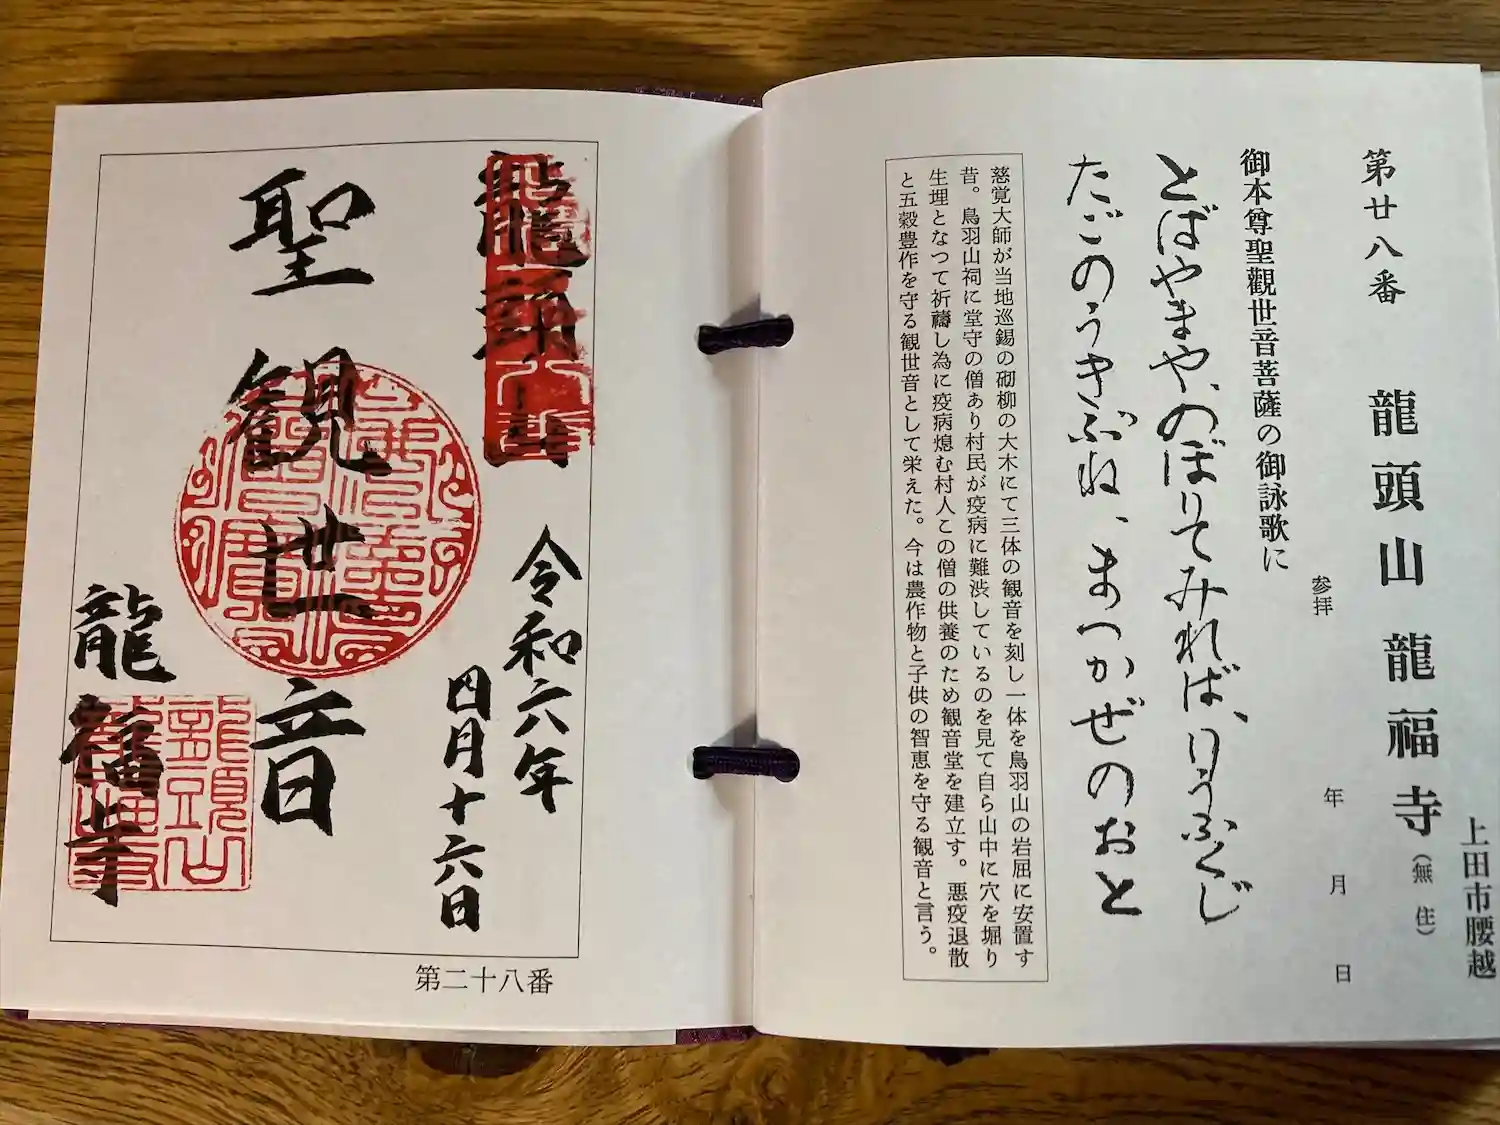 上田市腰越
第廿八番 龍頭山 龍福寺(無住)
参拝 年 月 日
御本尊聖觀世音菩薩の御詠歌に
とばやまや、のぼりてみれば、りうふくじ
たごのうきぶね、まつかぜのおと
慈覚大師が当地巡錫の砌柳の大木にて三体の観音を刻し一体を鳥羽山の岩屈に安置す
昔。鳥羽山祠に堂守の僧あり村民が疫病に難渋しているのを見て自ら山中に穴を堀り
生埋となつて祈禱し為に疫病熄む村人この僧の供養のため観音堂を建立す。悪疫退散
と五穀豊作を守る観世音として栄えた。今は農作物と子供の智恵を守る観音と言う。
龍頭山
令和六年
四月十六日
聖観世音
龍福寺
龍頭山
龍福寺
第二十八番